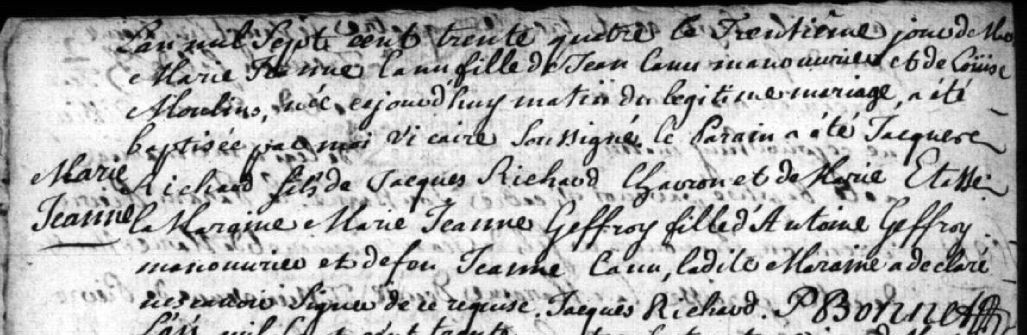 L'an mil Sept cent trente quatre le Trentiême jour de
Marie Jeanne Canu fille de Jean Canu manouvrier et de Loüise
Moulins, née cejourd'huy matin du legitime mariage, a été
baptisée par moi Vicaire Soussigné le Parain a été Jacques
Marie Jeanne
Richard fils de Jacques Richard Charon et de Marie
la Maraine Marie Jeanne Geffroy fille d'Antoine Geffroy
manouvrier et de feu Jeanne Canu, ladite Maraine a declaré
ne scavoir Signer de ce requise. Jacques Richard. P Bonneff
L'an mil Sept cent trente